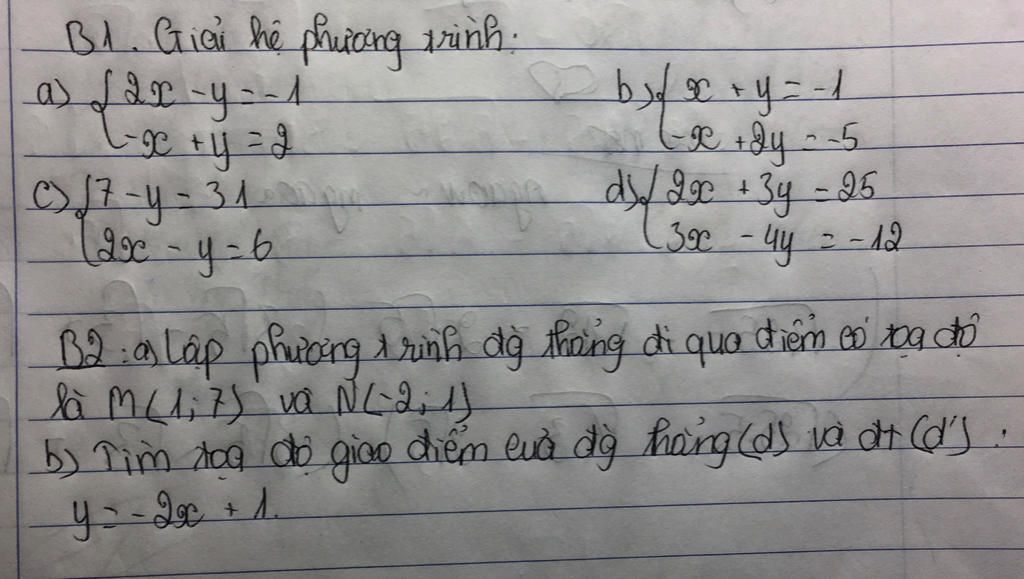 B1. Giải hệ phương trình:
a) { 2x - y = -1 b) { x + y = -1
-x + y = 2 -x + 2y = -5
c) { 7 - y = 31 d) { 2x + 3y = 25
2x - y = 6 3x - 4y = -12
B2: a) Lập phương trình đg thẳng đi qua điểm có tọa độ
là M(1;7) và N(-2;1)
b) Tìm tọa độ giao điểm của đg thẳng (d) và đt (d'):
y = -2x + 1.